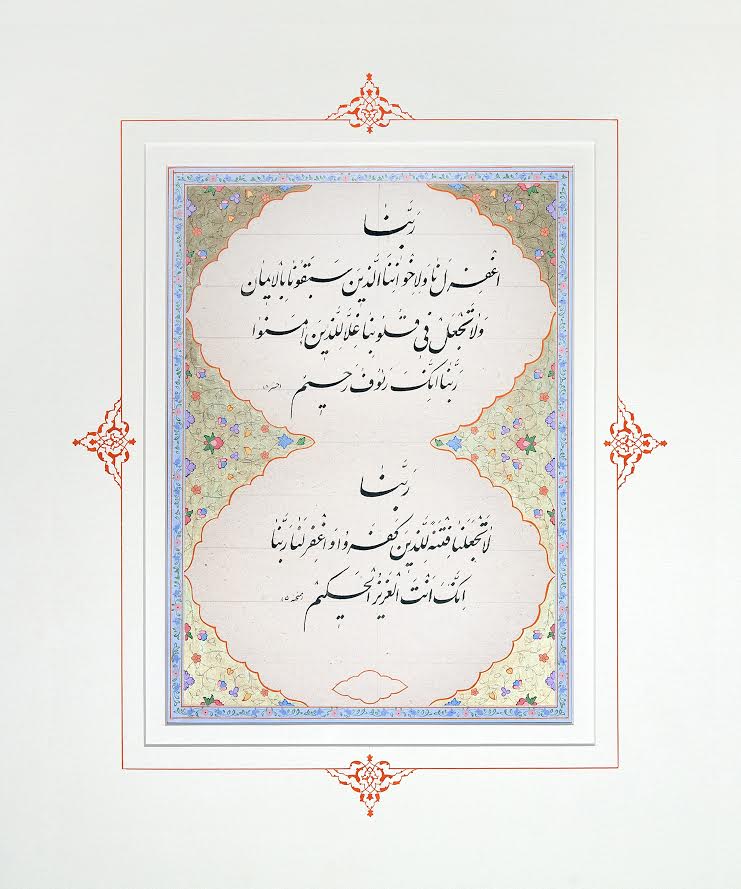 رَبَّنا
اغْفِرلَنا وَلِاِخْوانِنَا الَّذینَ سَبَقُونا بِالْایمانِ
وَلا تَجْعَلْ فی قُلُوبِنا غِلّاً لِلَّذینَ امَنوُا
رَبَّنا اِنَّکَ رَئوُفٌ رَحیمٌ حشر ۱۰
رَبَّنا
لا تَجْعَلْنا فِتْنَةً لِلَّذینَ کَفَروُا وَاغْفِرلَنا رَبَّنا
اِنَّکَ اَنْتَ الْعَزیزُ الْحَکیمُ ممتحنه ۵